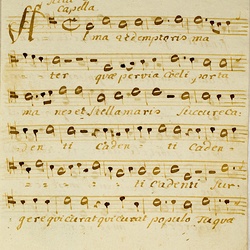 Capella
Alma redemptoris ma
ter quæ pervia cœli porta
ma nes et Stella maris Succurre ca-
denti cadenti caden-
ti cadenti Sur-
gere qui curat qui curat populo Tu quæ